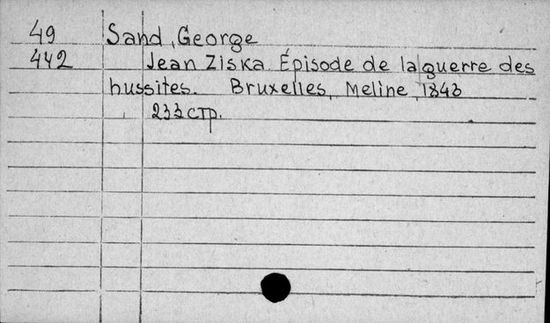 49 Sand, George
442 Jean Ziska. Épisode de la guerre des
hussites. Bruxelles, Meline, 1843
233 стр.